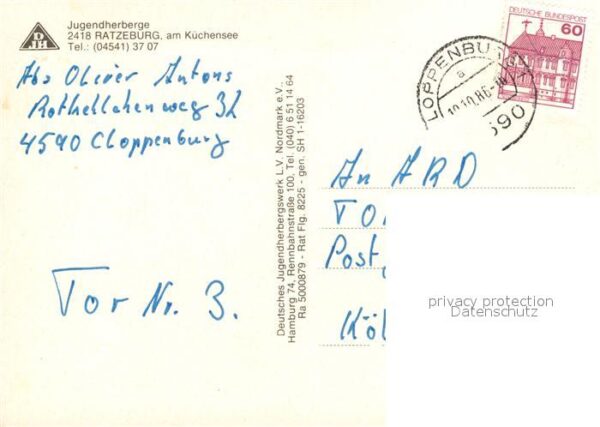 Jugendherberge
2418 RATZEBURG, am Küchensee
Tel.: (04541) 37 07
DJH
Abs Olivier Antons
Rothellahenweg 32
4590 Cloppenburg
Tor Nr. 3.
Deutsches Jugendherbergswerk L.V. Nordmark e.V.,
Hamburg 74, Rennbahnstraße 100, Tel. (040) 6 51 14 64
Ra 5000879 - Rat Flg. 8225 - gen. SH 1-16203
DEUTSCHE BUNDESPOST
60
LOPPENBURG
10.86
590
An ARD
TO
Post
Köl
privacy protection
Datenschutz